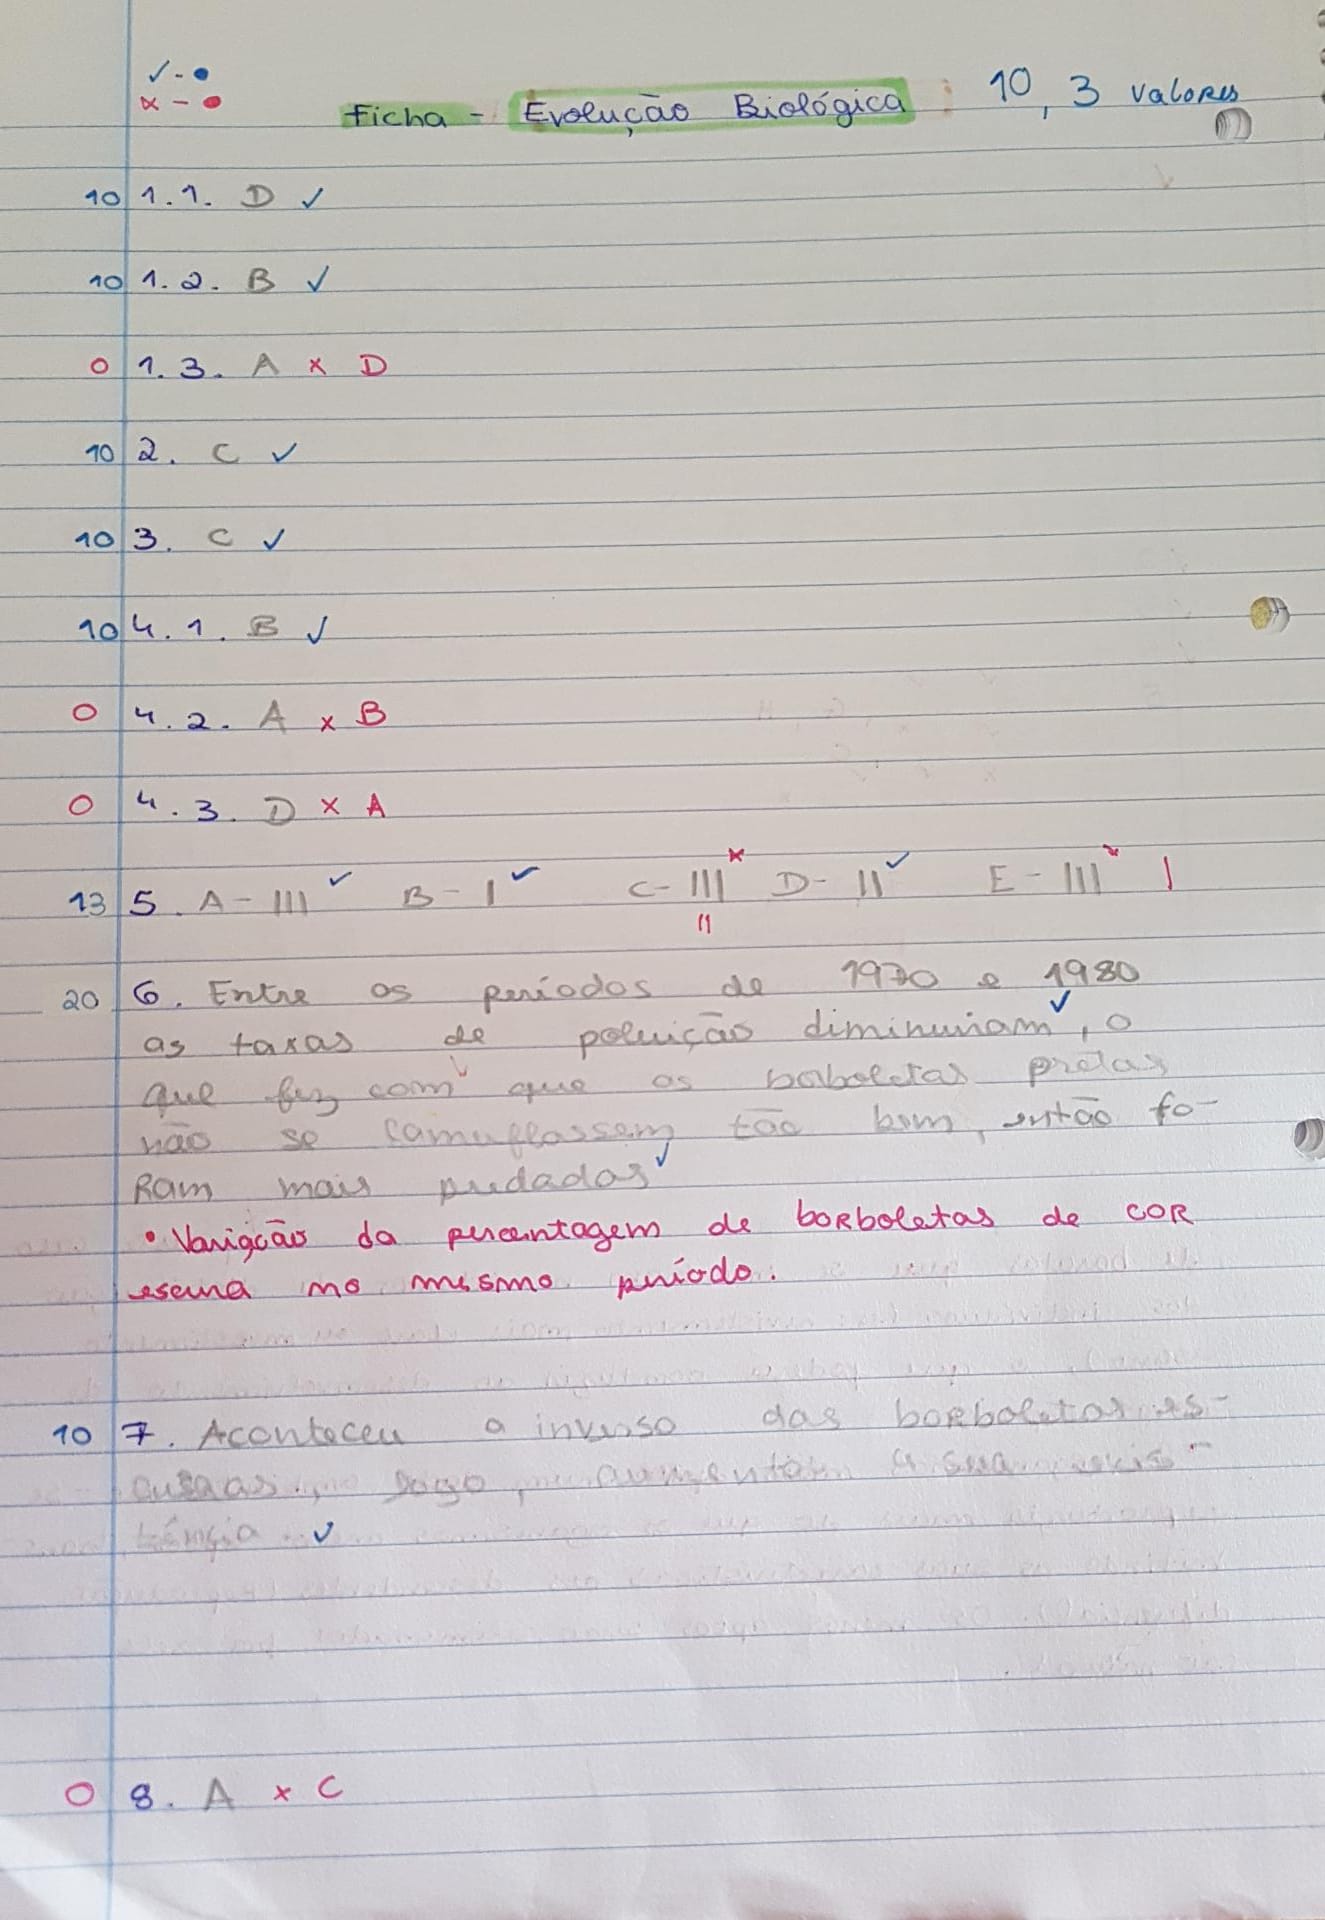 ✓ - •
x - •
Ficha - Evolução Biológica : 10, 3 valores
10 1.1. D ✓
10 1.2. B ✓
0 1.3. A x D
10 2. C ✓
10 3. C ✓
10 4.1. B ✓
0 4.2. A x B
0 4.3. D x A
13 5. A - III ✓ B - I ✓ C - III x D - II ✓ E - III x I
II
20 6. Entre os períodos de 1970 e 1980
as taxas de poluição diminuiram ✓, o
que fez com que as boboletas pretas
não se camuflassem tão bem, então fo-
Ram mais predadas ✓
• Variação da percentagem de borboletas de cor
escura no mesmo período.
10 7. Aconteceu o inverso das borboletas es-
curas, logo, aumentou a sua
✓
0 8. A x C